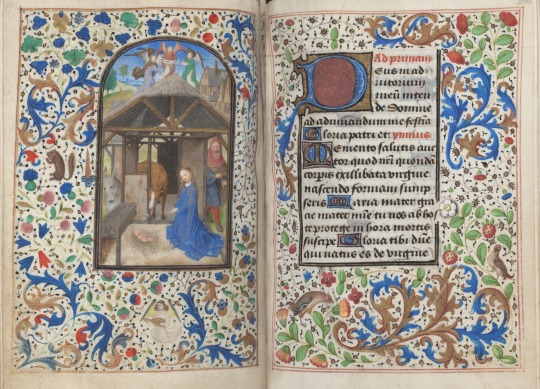 Ad primam
Deus in ad
iutorium
meum inten
de Domine
ad adiuuandum me festina
Gloria patri et primus
Memento salutis auc
tor quod nri quondam
corporis ex illibata virgine
nascendo formam sump
seris Maria mater gra
cie mater mie tu nos ab ho
ste protege in hora mortis
suscipe Gloria tibi dne
qui natus es de virgine